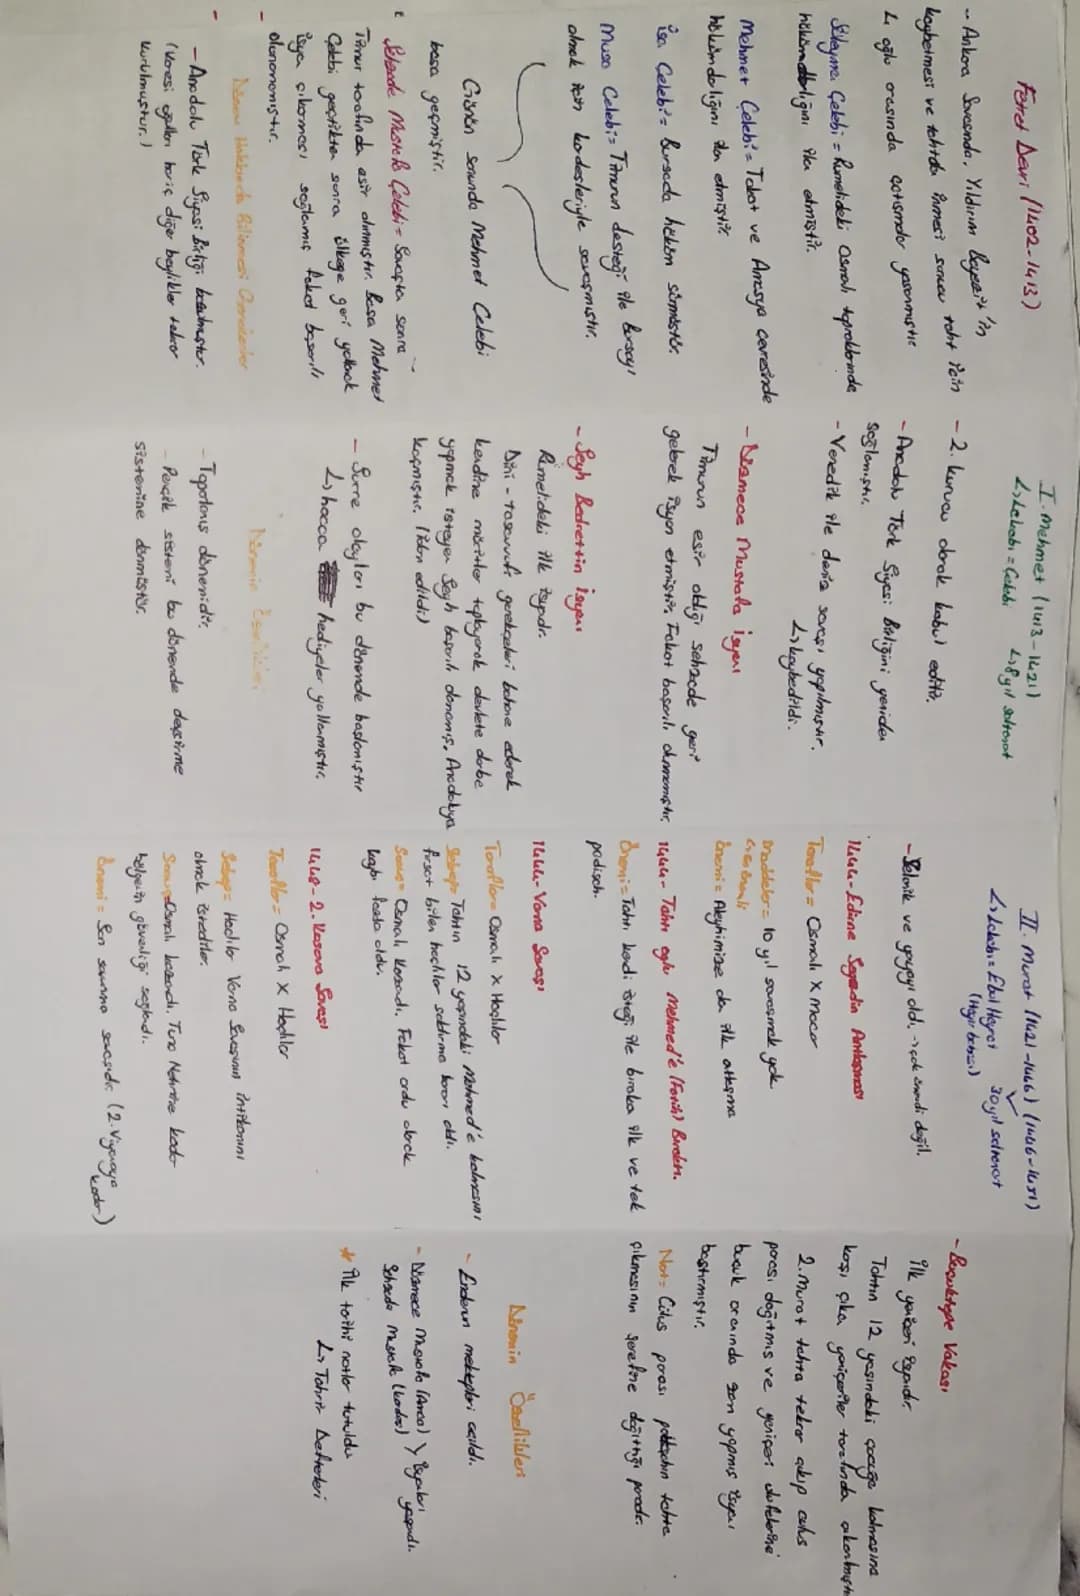 Fetret Devri (1402-1413)
-- Ankara Savaşında, Yıldırım Beyazit'in
kaybetmesi ve tahtda inmesi sonucu taht için
↳ oğlu arasında çatışmalar yaşanmıştır
Süleyman Çelebi = Rumelideki Osmanlı topraklarında
hükümdarlığını ilan etmiştir.
Mehmet Çelebi = Tokat ve Amasya çevresinde
hükümdarlığını ilan etmiştir.
İsa Çelebi = Bursada hüküm sürmüştür.
Musa Çelebi = Timurun desteği ile bursayı
almak için kardeşleriyle savaşmıştır.
Günün sonunda Mehmet Çelebi
başa geçmiştir.
Şehzade Mustafa Çelebi = Savaşta sonra
Timur tarafında esir alınmıştır. Başa Mehmet
Çelebi geçtikten sonra ülkeye geri gelerek
isyan çıkarması sağlamış fakat başarılı
olamamıştır.
Dönem Hakkında Bilinmesi Gerekenler
- Anadolu Türk Siyasi Birliği bozulmuştur.
(Karesi oğulları hariç diğer beylikler tekrar
kurulmuştur.)
I. Mehmet (1413-1421)
↳ Lakabı = Çelebi ↳ 8 yıl saltanat
- 2. kurucu olarak kabul edilir.
- Anadolu Türk Siyasi Birliğini yeniden
sağlamıştır.
- Venedik ile deniz savaşı yapılmıştır.
↳ kaybedildi.
- Düzmece Mustafa İsyanı
Timurun esir aldığı şehzade geri
gelerek isyan etmiştir. Fakat başarılı olmamıştır.
- Şeyh Bedrettin İsyanı
Rumelideki ilk isyandır.
Dini - tasavvufi gerekçeleri bahane ederek
kendine müritler toplayarak devlete darbe
yapmak isteyen Şeyh başarılı olamamış, Anadoluya
kaçmıştır. (idam edildi)
- Surre alayları bu dönemde başlamıştır
↳ hacca hediyeler yollanmıştır.
Dönemin Özellikleri
- Toparlanış dönemidir.
- Pençik sistemi bu dönemde devşirme
sistemine dönmüştür.
II. Murat (1421-1444) (1446-1451)
↳ Lakabı = Ebul Hayrat 30 yıl saltanat
(Hayır babası)
- Selanik ve yanyayı aldı. → çok önemli değil.
1444 - Edirne Segedin Antlaşması
Taraflar = Osmanlı X macar
Maddeler = 10 yıl savaşmak yok
↳ önemli
Önemi = Aleyhimize olan ilk antlaşma
1444 - Tahtı oğlu Mehmed'e (Fatih) Bıraktı.
Önemi = Tahtı kendi isteği ile bırakan ilk ve tek
padişah.
1444 - Varna Savaşı
Taraflar = Osmanlı X Haçlılar
Sebep = Tahtın 12 yaşındaki Mehmed'e kalmasını
fırsat bilen haçlılar saldırma kararı aldı.
Sonuç = Osmanlı Kazandı. Fakat ordu olarak
kaybı fazla oldu.
1448 - 2. Kosova Savaşı
Taraflar = Osmanlı X Haçlılar
Sebep = Haçlılar Varna Savaşının intikamını
almak istediler.
Sonuç = Osmanlı kazandı. Tuna Nehrine kadar
bölgenin güvenliği sağlandı.
Önemi = Son savunma savaşıdır. (2. Viyanaya
kadar)
- Buçuktepe Vakası
ilk yeniçeri isyanıdır.
Tahtın 12 yaşındaki çocuğa kalmasına
karşı çıkan yeniçeriler tarafından çıkarılmıştır
2. Murat tahta tekrar çıkıp culus
parası dağıtmış ve yeniçeri ulufelerine
buçuk oranında zam yapmış isyanı
bastırmıştır.
Not = Culus parası padişahın tahta
çıkmasının şerefine dağıttığı paradır.
Dönemin Özellikleri
- Enderun mektepleri açıldı.
- Düzmece Mustafa (Amca) \ İsyanları
Şehzade Mustafa (kardeş) / yaşandı.
* ilk tarihi notlar tutuldu
↳ Tahrir Defterleri